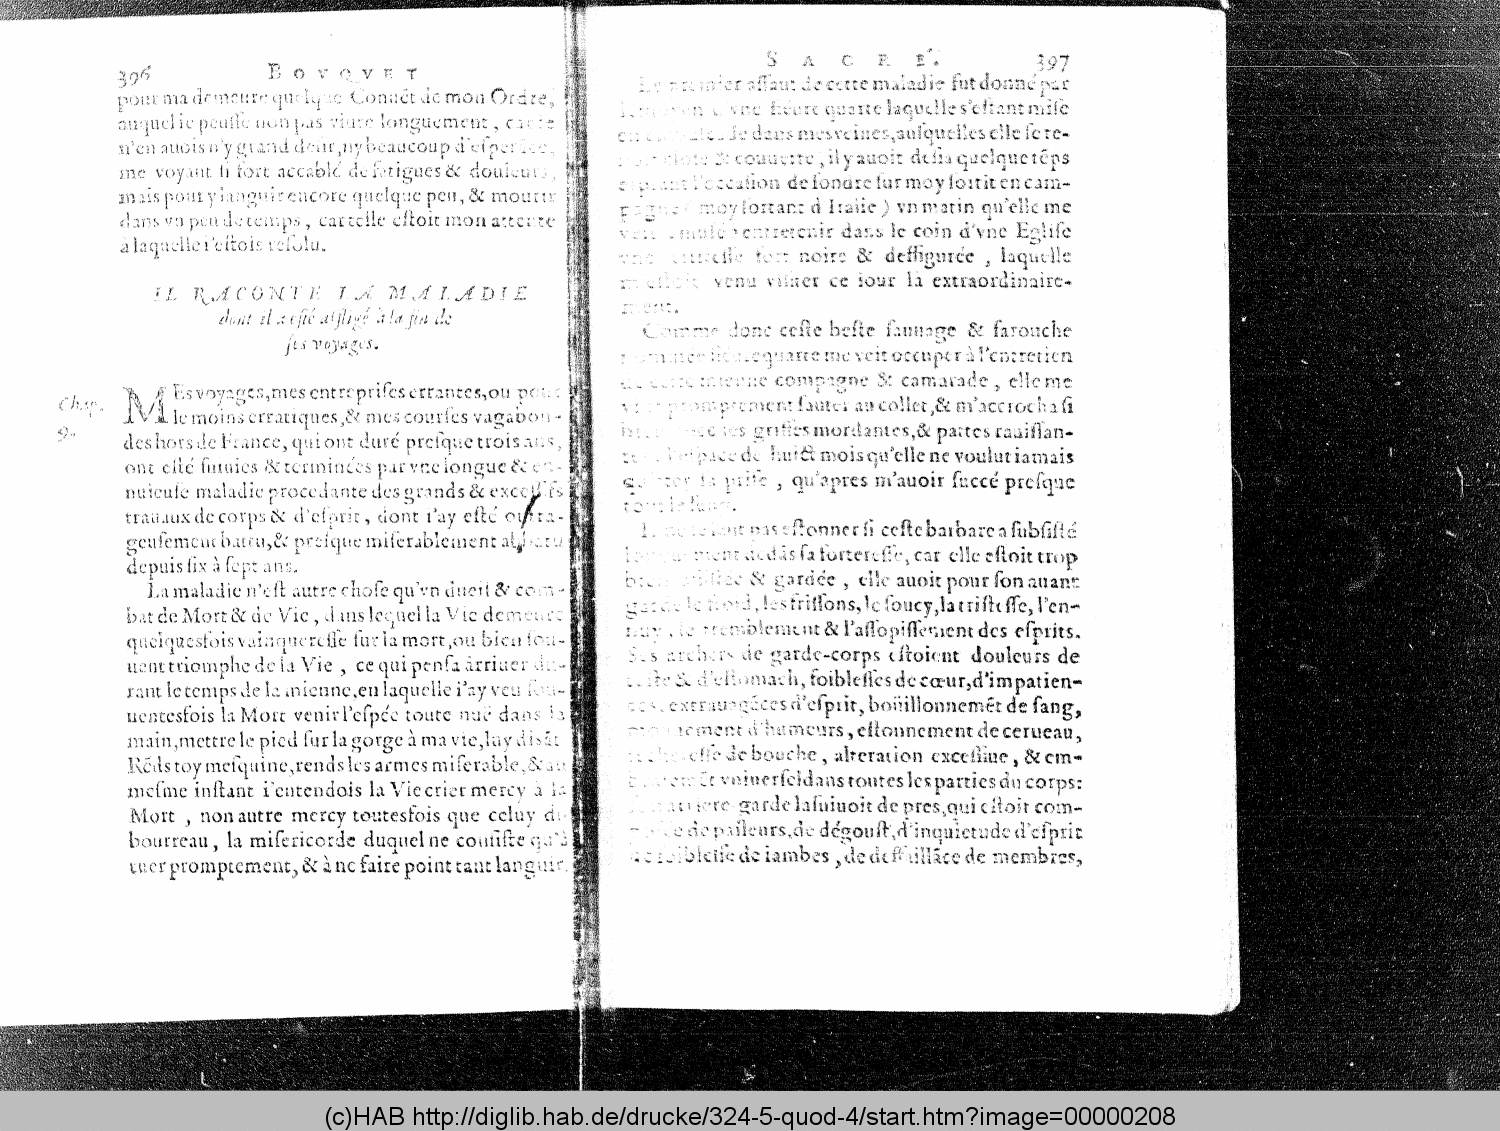 396 BOVQVET
pour ma demeure quelque Conuēt de mon Ordre,
auquel ie peusse non pas viure longuement, car ie
n'en auois n'y grand desir, ny beaucoup d'esperāce,
me voyant si fort accablé de fatigues & douleurs,
mais pour y languir encore quelque peu, & mourir
dans vn peu de temps, car telle estoit mon attente
à laquelle i'estois resolu.
IL RACONTE LA MALADIE
dont il a esté affligé à la fin de
ses voyages.
Chap. 9.
MEs voyages, mes entreprises errantes, ou pour
le moins erratiques, & mes courses vagabon-
des hors de France, qui ont duré presque trois ans,
ont esté suiuies & terminées par vne longue & en-
nuieuse maladie procedante des grands & excessifs
trauaux de corps & d'esprit, dont i'ay esté outra-
geusement battu, & presque miserablement abbatu
depuis six à sept ans.
La maladie n'est autre chose qu'vn dueil & com-
bat de Mort & de Vie, dans lequel la Vie demeure
quelquesfois vainqueresse sur la mort, ou bien sou-
uent triomphe de la Vie, ce qui pensa arriuer du-
rant le temps de la mienne, en laquelle i'ay veu sou-
uentesfois la Mort venir l'espée toute nuë dans la
main, mettre le pied sur la gorge à ma vie, luy disāt
Rēds toy mesquine, rends les armes miserable, & au
mesme instant i'entendois la Vie crier mercy à la
Mort, non autre mercy toutesfois que celuy du
bourreau, la misericorde duquel ne consiste qu'à
tuer promptement, & à ne faire point tant languir.
SACRÉ. 397
Le premier assaut de cette maladie fut donné par
vne fiéure quarte laquelle s'estant mise
dans mes veines, ausquelles elle se te-
& couuerte, il y auoit desia quelque tēps
l'occasion de fondre sur moy sortit en cam-
moy sortant d'Italie) vn matin qu'elle me
entretenir dans le coin d'vne Eglise
fort noire & deffigurée, laquelle
venu visiter ce iour là extraordinaire-
ment.
Comme donc ceste beste sauuage & farouche
quarte me veit occuper à l'entretien
de cette mienne compagne & camarade, elle me
promptement sauter au collet, & m'accrocha si
les griffes mordantes, & pattes rauissan-
l'espace de huict mois qu'elle ne voulut iamais
quitter sa prise, qu'apres m'auoir succé presque
tout le sang.
pas estonner si ceste barbare a subsisté
dedās sa forteresse, car elle estoit trop
bien & gardée, elle auoit pour son auant
garde le froid, les frissons, le soucy, la tristesse, l'en-
nuy, le tremblement & l'assopissement des esprits.
Ses archers de garde-corps estoient douleurs de
teste & d'estomach, foiblesses de cœur, d'impatien-
ces, extrauagāces d'esprit, boüillonnemēt de sang,
d'humeurs, estonnement de cerueau,
de bouche, alteration excessiue, & em-
vniuersel dans toutes les parties du corps:
garde la suiuoit de pres, qui estoit com-
de pasleurs, de dégoust, d'inquietude d'esprit
de foiblesse de iambes, de deffaillāce de membres,
(c)HAB http://diglib.hab.de/drucke/324-5-quod-4/start.htm?image=00000208